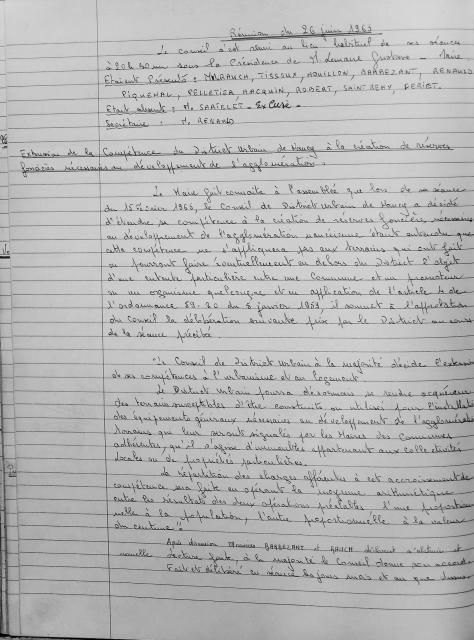 Réunion du 26 juin 1965
Le conseil s'est réuni au lieu habituel de ses séances
à 20h 30 sous la Présidence de M. Lemaire Gustave - Maire.
Etaient Présents : M. RAUCH, TISSOUX, HOUILLON, BARBEZANT, RENAUD
PIQUEMAL, PELLETIER, HACQUIN, ROBERT, SAINT REMY, FERIET.
Etait absent : M. SARTELET - Excusé -
Secrétaire : M. RENAUD
Extension de la Compétence du District Urbain de Nancy à la création de réserves
foncières nécessaires au développement de l'agglomération.
Le Maire fait connaître à l'assemblée que lors de sa séance
du 15 Février 1965, le Conseil de District Urbain de Nancy a décidé
d'étendre sa compétence à la création de réserves foncières nécessaires
au développement de l'agglomération nancéienne étant entendu que
cette compétence ne s'appliquera pas aux terrains qui ont fait
ou pourront faire éventuellement en dehors du District l'objet
d'une entente particulière entre une Commune et un promoteur
ou un organisme quelconque et en application de l'article 4 de
l'ordonnance 59-30 du 5 janvier 1959, il soumet à l'approbation
du Conseil la délibération suivante prise par le District au cours
de la séance précitée.
"Le Conseil de District Urbain à la majorité décide l'extension
de ses compétences à l'urbanisme et au logement
Le District Urbain pourra désormais se rendre acquéreur
des terrains susceptibles d'être construits ou utilisés pour l'installation
des équipements généraux nécessaires au développement de l'agglomération
terrains qui leur seront signalés par les Maires des Communes
adhérentes, qu'il s'agisse d'immeubles appartenant aux collectivités
locales ou de propriétés particulières.
La répartition des charges afférentes à cet accroissement de
compétence sera fait en opérant la moyenne arithmétique
entre les résultats des deux opérations préalables l'une proportion
nelle à la population, l'autre proportionnelle à la valeur
du centime"
Après discussion Messieurs BARBEZANT et RAUCH déclarent s'abstenir et
nouvelle lecture faite, à la majorité le Conseil donne son accord
Fait et délibéré en séance les jours, mois et an que dessus